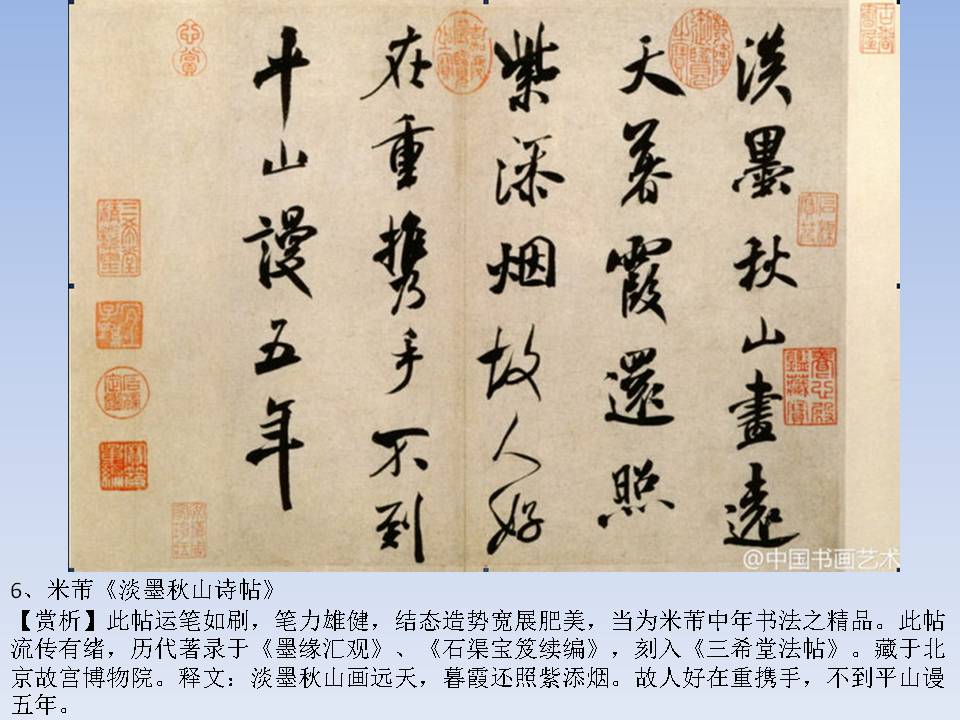 淡墨秋山畫遠
天暮霞還照
紫添烟故人好
在重携手不到
平山謾五年
@中国书画艺术
6、米芾《淡墨秋山诗帖》
【赏析】此帖运笔如刷，笔力雄健，结态造势宽展肥美，当为米芾中年书法之精品。此帖
流传有绪，历代著录于《墨缘汇观》、《石渠宝笈续编》，刻入《三希堂法帖》。藏于北
京故宫博物院。释文：淡墨秋山画远天，暮霞还照紫添烟。故人好在重携手，不到平山谩
五年。